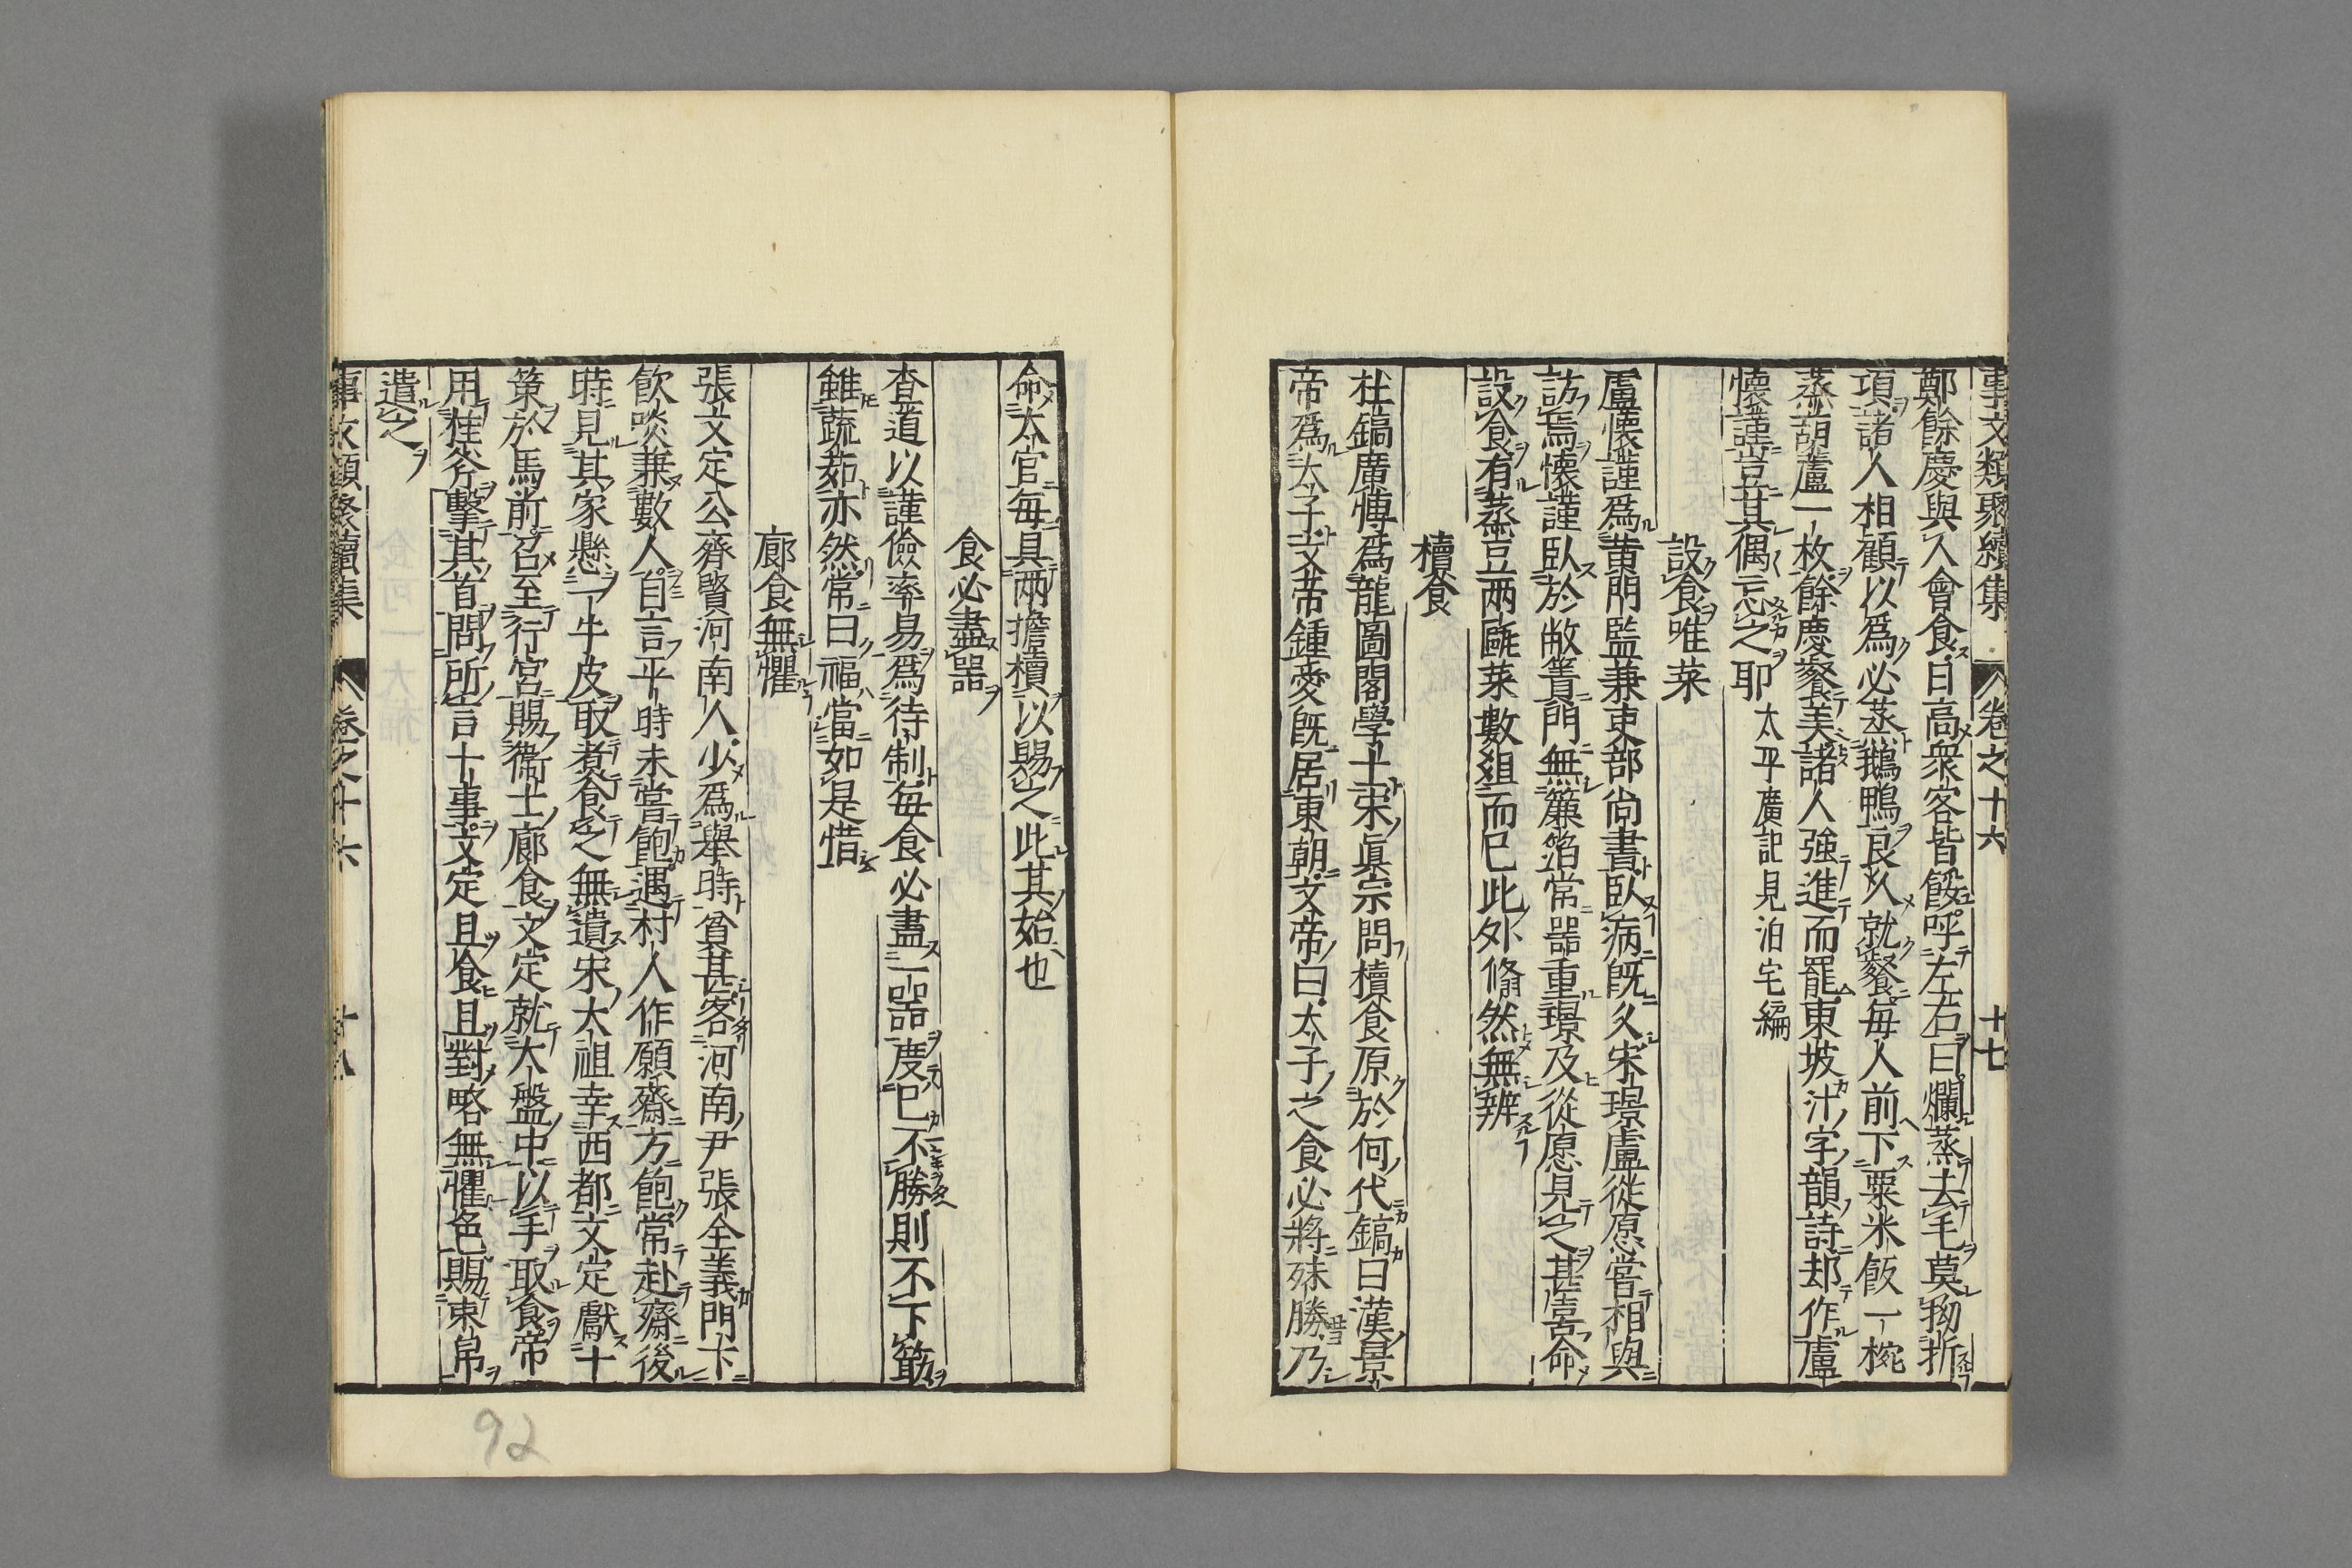 事文類聚續集 卷之十六 十七
鄭餘慶與人會食日高衆客皆餒呼左右曰爛蒸去毛莫拗折
項諸人相顧以爲必蒸鵝鴨良久就餐每人前下粟米飯一椀
蒸葫蘆一枚餘慶餐美諸人強進而罷東坡汁字韻詩却作盧
懷謹豈其偶忘之耶 太平廣記見泊宅編
設食唯菜
盧懷謹爲黄門監兼吏部尚書臥病旣久宋璟盧從愿嘗相與
訪焉懷謹臥於敝簀門無簾箔常器重璟及從愿見之甚喜命
設食有蒸豆兩甌菜數俎而已此外翛然無辨
櫝食
杜鎬廣博爲龍圖閣學士宋眞宗問櫝食原於何代鎬曰漢景
帝爲太子文帝鍾愛旣居東朝文帝曰太子之食必將殊勝乃
命太官每具兩擔櫝以賜之此其始也
食必盡噐
查道以謹儉率易爲待制每食必盡一噐度已不勝則不下筯
雖蔬茹亦然常曰福當如是惜
廊食無懼
張文定公齊賢河南人少爲舉時貧甚客河南尹張全義門下
飲啖兼數人自言平時未嘗飽遇村人作願齋方飽常赴齋後
時見其家懸一牛皮取煮食之無遺宋太祖幸西都文定獻十
策於馬前召至行宮賜衞士廊食文定就大盤中以手取食帝
用柱斧擊其首問所言十事文定且食且對略無懼色賜束帛
遣之
事文類聚續集 卷之十六 十八
92